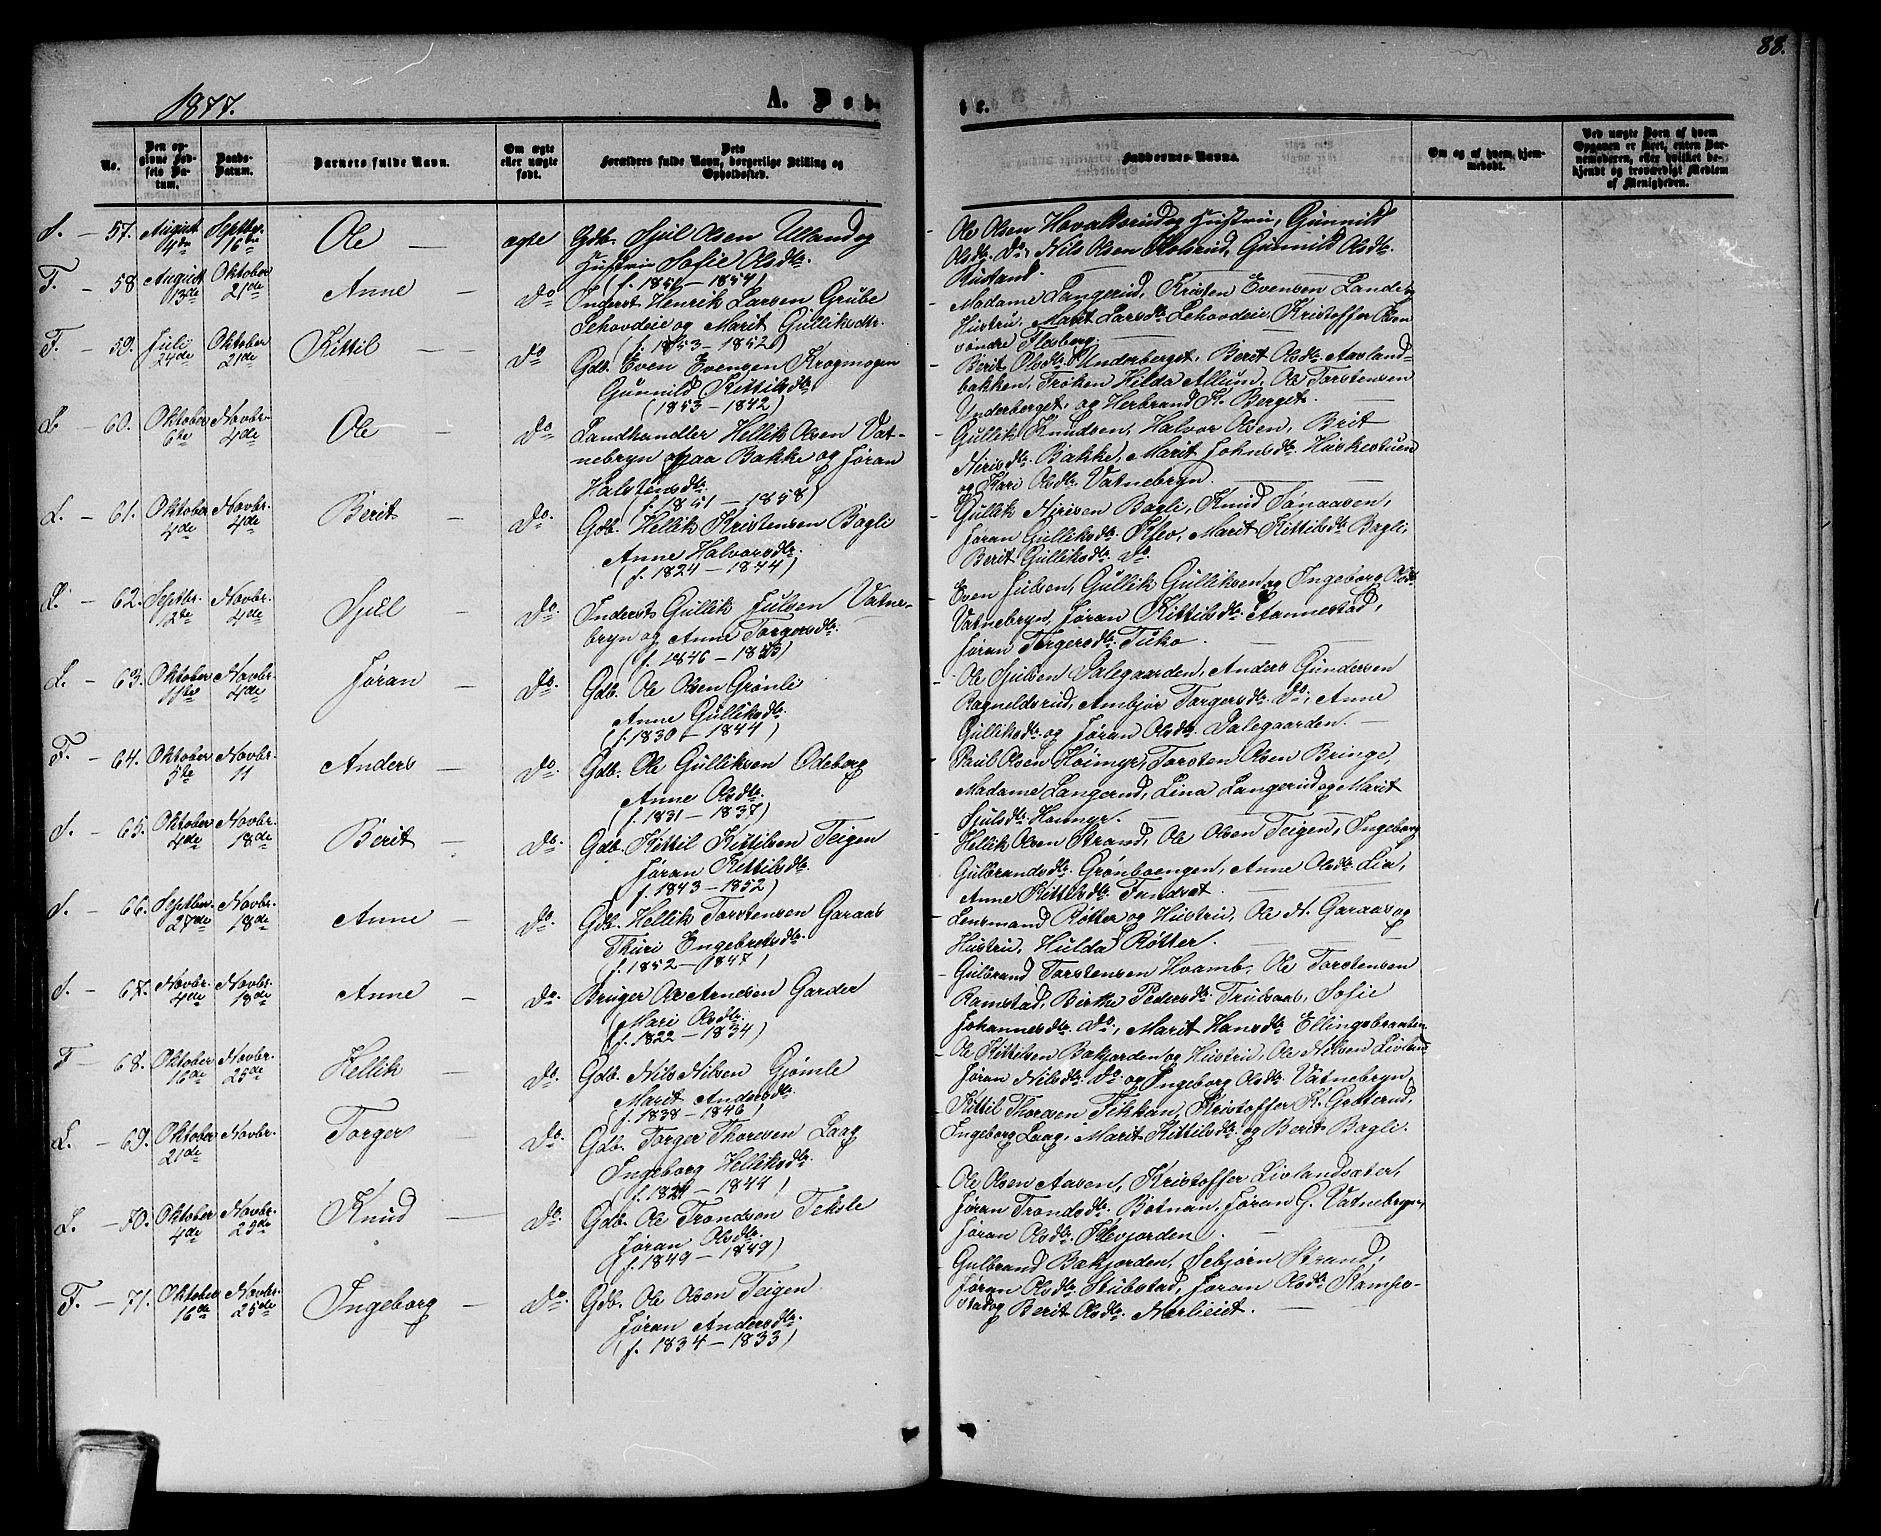 88.
1877.
A. Døb-
te.
No.
Den op-
givne Fød-
sels Da-
tum.
Daabs-
Datum.
Barnets fulde Navn.
Om ægte
eller uægte
født.
Dets
Forældres fulde Navn, borgerlige Stilling og
Opholdssted.
Faddernes Navne.
Om og af hvem, hjem-
medøbt.
Ved uægte Børn af hvem
Opgaven er skeet, enten Bar-
nemoderen, eller hvilket be-
kjendt og troværdigt Medlem
af Menigheden.
S. - 57. August 4de Septbr. 16de Ole — ægte Gdb. Sjul Olsen Ulland og
Hustru Sofie Olsdtr.
(f. 1851 - 1854)
Ole Olsen Hovalsrud og Hustru, Gunnild
Olsdtr. Do, Nils Olsen Kolsrud, Gunnild Olsdtr.
Rustand.
F. - 58 August 13de Oktober 21de Anne — Do Inderst Henrik Larsen Grube
Lehovdeie og Marit Gulliksdtr.
(f. 1853 - 1852)
Madame Langerud, Kristen Evensen Lande og
Hustru, Marit Larsdtr Lehovdeie, Kristoffer Even
søndre Flesberg.
F. - 59. Juli 24de Oktober 21de Kittil — Do Gdb. Even Evensen Krogmogen
Gunnild Kittilsdtr.
(1853 - 1842)
Berit Olsdtr Underberget, Berit Olsdtr. Aasland-
bakken, Frøken Hilda Allum, Ole Torstensen
Underberget, og Herbrand K. Berget.
L - 60. Oktober 6te Novbr 4de Ole Do Landhandler Hellik Olsen Vat-
nebryn paa Bakke og Jøran
Halstensdtr.
(f. 1851 - 1858)
Gullik Knudsen, Halvor Olsen, Brit
Nirisdtr. Bakke, Marit Johnsdtr. Haskestuen
og Kari Olsdtr. Vatnebryn.
L. - 61. Oktober 4de Novbr. 4de Berit - Do. Gdb. Hellik Kristensen Bagli
Anne Halvorsdtr.
(f. 1824 - 1844)
Gullik Nirisen Bagli, Knud Sønaasen,
Jøran Gulliksdtr. Klev, Marit Kittilsdtr Bagli,
Berit Gulliksdtr. do
L. - 62. Septbr. 12te Novbr. 4de Sjul Do. Inderst Gullik Julsen Vatne-
bryn og Anne Torgersdtr.
(f. 1846 - 1853)
Even Julsen, Gullik Gulliksen og Ingeborg Olsdtr
Vatnebryn, Jøran Kittilsdtr. Aannestad,
Jøran Torgersdtr. Tuko.
L. - 63. Oktober 11te Novbr. 4de Jøran — Do. Gdb. Ole Olsen Grønli
Anne Gulliksdtr.
(f. 1830 - 1844)
Ole Sjulsen Dalegaarden, Anders Gundersen
Ragneldsrud, Ambjør Torgersdtr. Do, Anne
Gulliksdtr og Jøran Olsdtr. Dalegaarden. —
F. - 64. Oktober 5te Novbr. 11 Anders — Do. Gdb. Ole Gulliksen Odeborg
Anne Olsdtr.
(f. 1831 - 1837)
Paul Olsen Høimyr, Torsten Olsen Bringe,
Madame Langerud, Lina Langerud og Marit
Sjulsdtr. Hoimyr.
S. - 65. Oktober 4de Novbr. 18de Berit — Do. Gdb. Kittil Kittilsen Teigen
Jøran Kittilsdtr.
(f. 1843 - 1852)
Hellik Olsen Strand, Ole Olsen Teigen, Ingeborg
Gulbrandsdtr. Grønboengen, Anne Olsdtr Lia,
Anne Kittilsdtr. Tundset.
S. - 66. Septber. 27de Novbr. 18de Anne — Do. Gdb. Hellik Torstensen Garaas
Thuri Engebretsdtr.
(f. 1852 - 1847)
Lensmand Røtter og Hustru, Ole N. Garaas og
Hustru, Hulda Røtter.
S. - 67. Novbr. 4de Novbr. 18de Anne - Do. Bruger Ole Arnesen Garder
(Mari Olsdtr.
f. 1822 - 1834)
Gulbrand Torstensen Hvamb, Ole Torstensen
Ramstad, Birthe Pedersdtr. Trulsaas, Sofie
Johannesdtr. Do, Marit Hansdtr Ellingsbraaten
F - 68. Oktober 16de Novbr. 25de Hellik — Do. Gdb. Nils Nilsen Gjømle
Marit Andersdtr.
(f. 1838 - 1846)
Ole Kittilsen Bækjorden og Hustru, Ole Nilsen Livland
Jøran Nilsdtr. Do og Ingeborg Olsdtr. Vatnebryn
L. - 69. Oktober 21de Novbr. Torger — Do. Gdb. Torger Thoresen Laag
Ingeborg Helliksdtr.
Kittil Thoresen Fikkan, Kristoffer K. Gotterud,
Ingeborg Laag, Marit Kittilsdtr og Berit Bagli.
L. - 70. Oktober 4de Novbr. 25de Knud — Do. Gdb. Ole Trondsen Teksle
Jøran Olsdtr.
(f. 1849 - 1849)
Ole Olsen Aasen, Kristoffer Livlandsæter,
Jøran Trondsdtr. Botnan, Jøran G. Vatnebryn,
Jøran Olsdtr. Klevjorden. —
F. - 71. Oktober 16de Novbr. 25de Ingeborg — Do. Gdb. Ole Olsen Teigen
Jøran Andersdtr.
(f. 1834 - 1833)
Gulbrand Bækjorden, Sebjørn Strand,
Jøran Olsdtr. Stubstad, Jøran Olsdtr. Kampe-
stad og Berit Olsdtr. Nerlieiet. —